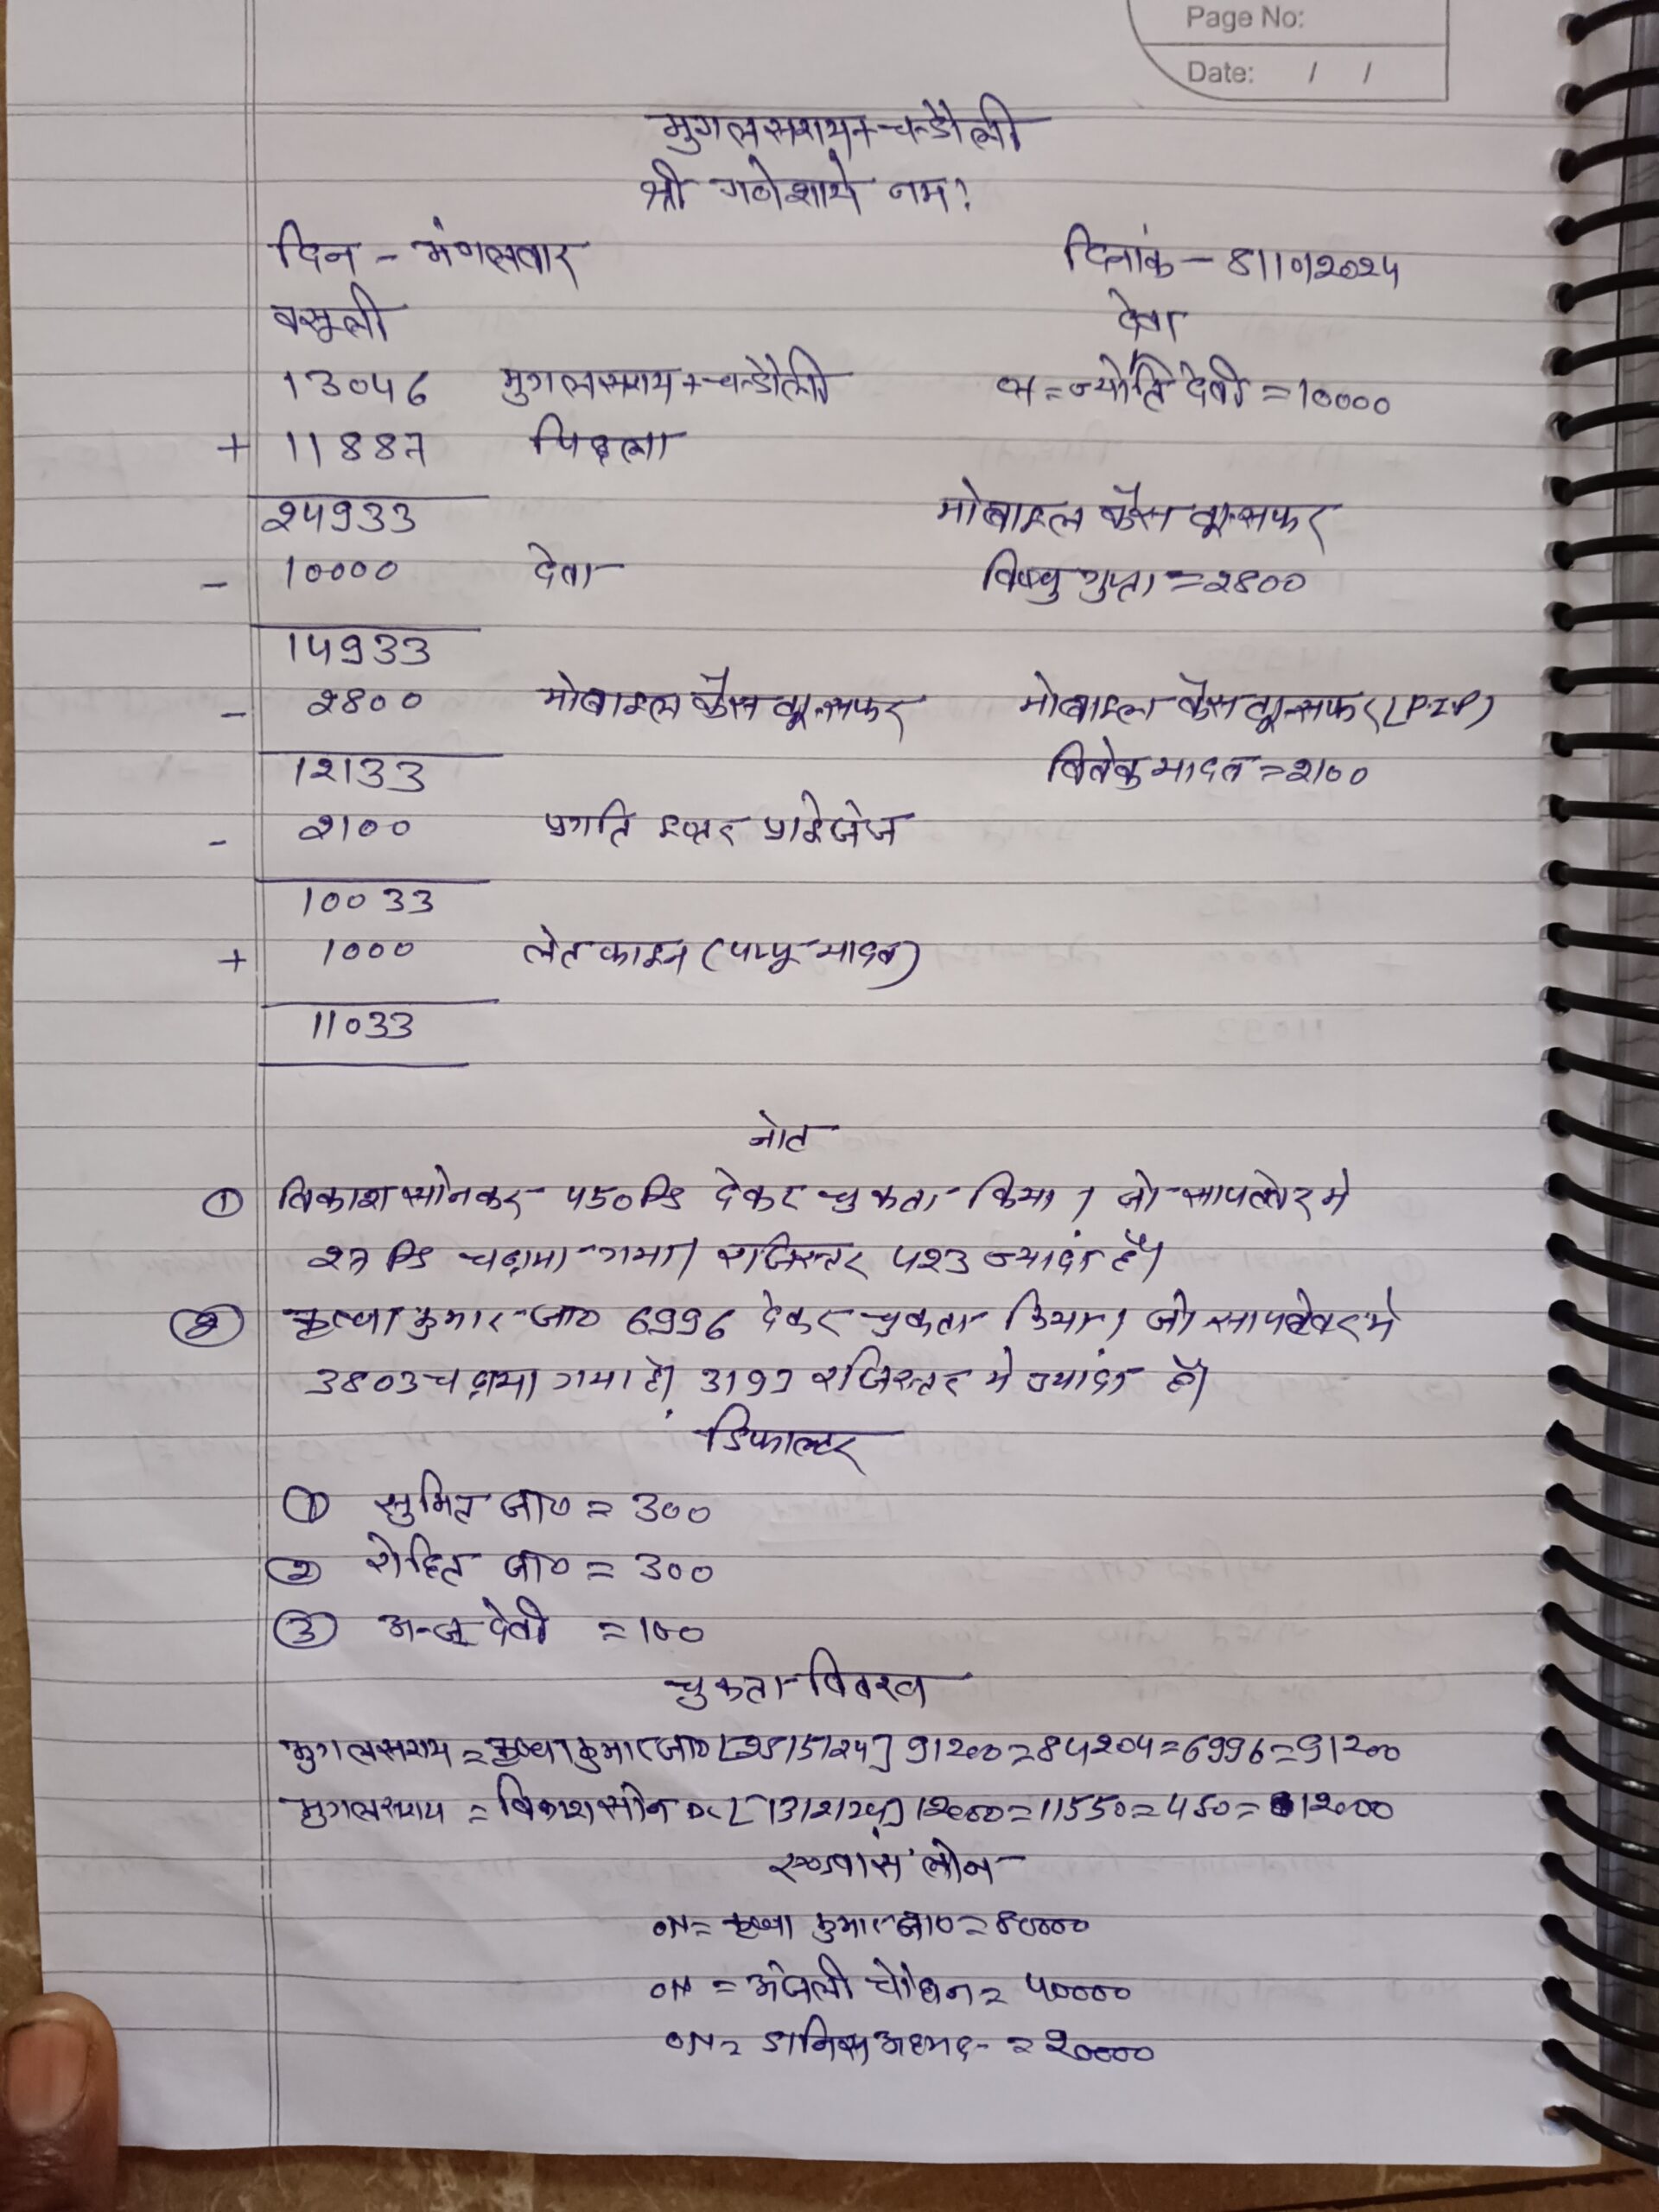 Page No:
Date: / /
मुगलसराय+चन्डौली
श्री गणेशाये नम:
दिन - मंगलवार दिनांक - 8/10/2024
वसूली देवा
13046 मुगलसराय+चन्डौली ज्योति देवी = 10000
+ 11887 पिछला
24933 मोबाइल कैस ट्रान्सफर
- 10000 देवा विष्णु गुप्ता = 2800
14933
- 2800 मोबाइल कैस ट्रान्सफर मोबाइल कैस ट्रान्सफर (P.I.P)
12133 विवेक यादव = 2100
- 2100 प्रगति इन्टर प्राइजेज
10033
+ 1000 लेट फाइन (पप्पू यादव)
11033
नोट
① विकाश सोनकर 450 देकर चुकता किया। जो साफ्टवेर मे
27 चढ़ाया गया। रजिस्टर 423 ज्यादा है।
② कृष्णा कुमार जा० 6996 देकर चुकता किया। जो साफ्टवेयर मे
3803 चढ़ाया गया है। 3193 रजिस्टर मे ज्यादा है।
डिफाल्टर
① सुमित जा० = 300
② रोहित जा० = 300
③ अन्जू देवी = 100
चुकता विवरण
मुगलसराय = कृष्णा कुमार जा० [25/5/24] 91200=84204=6996=91200
मुगलसराय = विकाश सोनकर [13/2/24] 12000=11550=450=12000
एडवांस लोन
ON= कृष्णा कुमार जा० = 80000
ON = अंजली चौहान = 40000
ON= दानिस अहमद = 20000